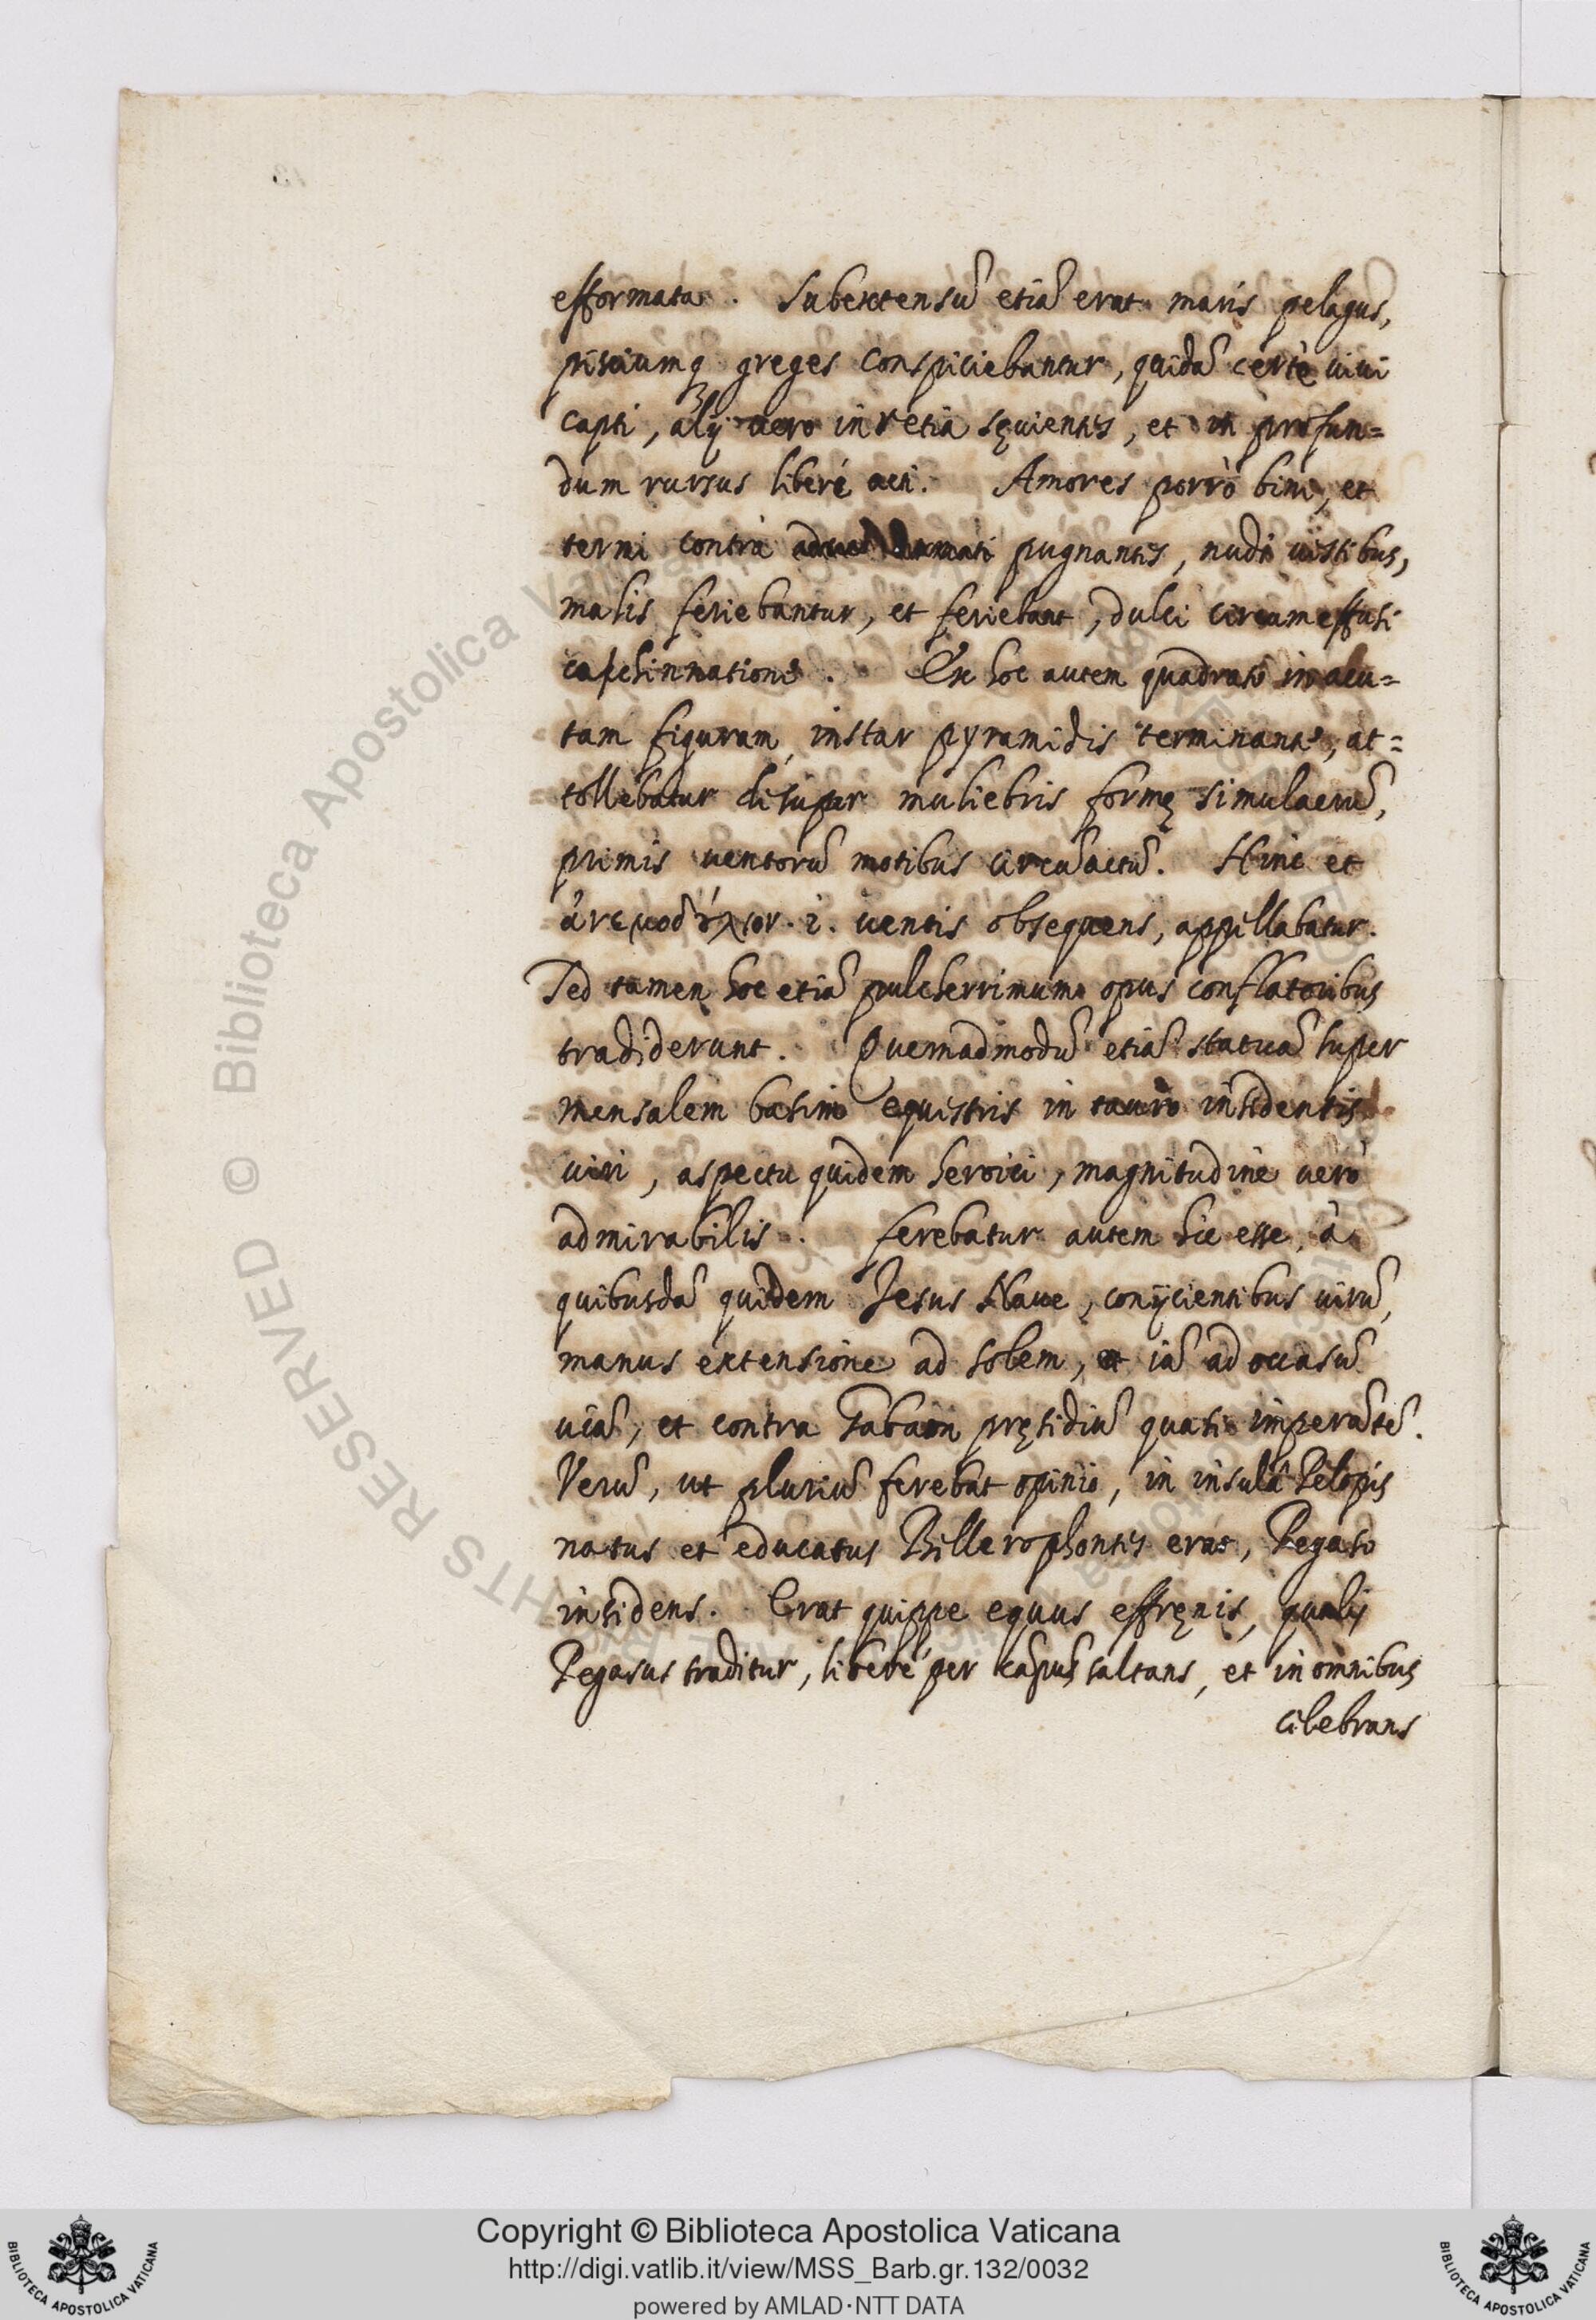 efformata. Subextensũ etiã erat maris pelagus,
pisciumq greges conspiciebantur, quidã certè uiui
capti, alij uero in retia sęuientes, et in profun=
dum rursus liberè acti. Amores porrò bini, et
terni contrà pugnantes, nudi uestibus,
malis feriebantur, et feriebant, dulci circumeffusi
cachinnatione. Ex hoc autem quadrato in acu=
tam figuram, instar pyramidis terminante, at=
tollebatur desuper muliebris formę simulacrũ,
primis uentorũ motibus circũactũ. Hinc et
ἀνεμοδούλιον .i. uentis obsequens, appellabatur.
Sed tamen hoc etiã pulcherrimum opus conflatoribus
tradiderunt. Quemadmodũ etiã statuã super
mensalem basim equestris in tauro insidentis
uiri, aspectu quidem heroici, magnitudine uerò
admirabilis. ferebatur autem hic esse, à
quibusdã quidem Jesus Naue, conijcientibus uirũ,
manus extensione ad solem, et iã ad occasũ
uiã, et contra Gabaon pręsidiũ quasi imperãtẽ.
Verũ, ut pluriũ ferebat opinio, in insulâ Pelopis
natus et educatus Bellerophontes erat, Pegaso
insidens. Erat quippe equus effręnis, qualis
Pegasus traditur, liberè per cãpũ saltans, et in omnibus
celebrans
Copyright © Biblioteca Apostolica Vaticana
http://digi.vatlib.it/view/MSS_Barb.gr.132/0032
powered by AMLAD·NTT DATA